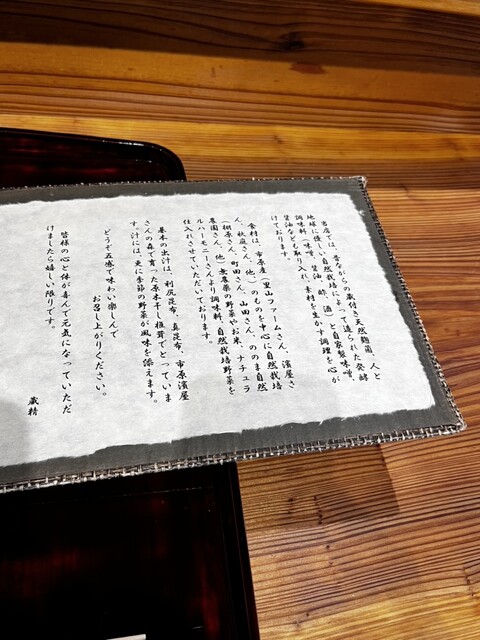 当店では、昔ながらの蔵付き天然麹菌、人と
地球に優しい自然栽培によって造られた発酵
調味料(味噌、醤油、酢、酒)と自家製味噌、
醤油なども取り入れ、素材を生かす調理を心が
けております。
食材は、市原産(里山ファームさん、濱屋さ
ん、秋庭さん、他)のものを中心に自然栽培
(相原さん、町田さん、山田さん、ののま自然
農園さん、他)無農薬の野菜やお米、ナチュラ
ルハーモニーさんより調味料、自然栽培野菜を
仕入れさせていただいております。
基本の出汁は、利尻昆布、真昆布、市原濱屋
さんの森で育った原木干し椎茸でとっていま
す。汁には、更に季節の野菜が風味を添えます。
どうぞ五感で味わい楽しんで
お召し上がりください。
皆様の心と体が喜んで元気になっていただ
けましたら嬉しい限りです。
蔵精